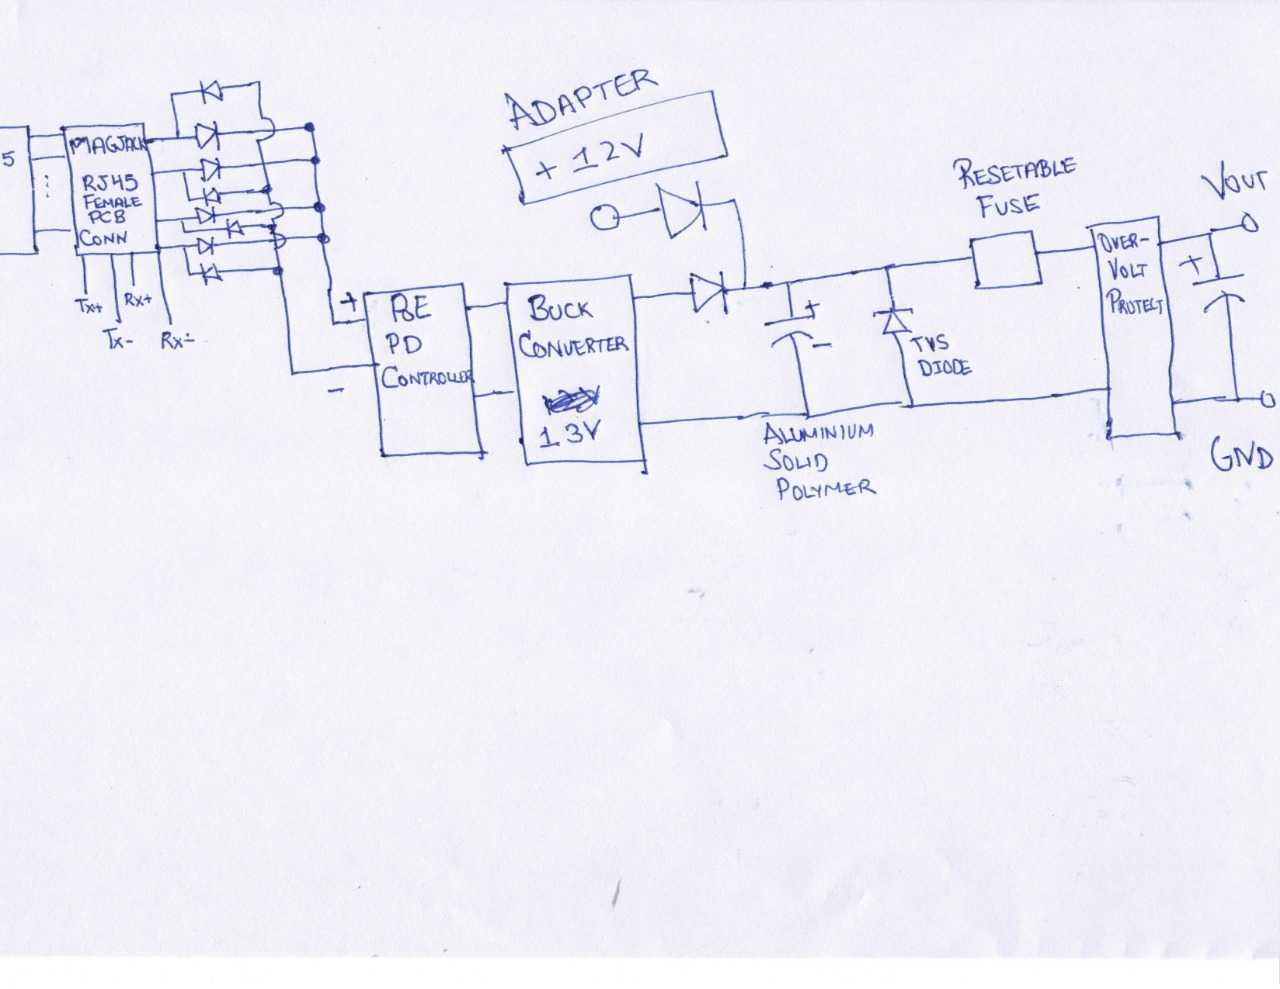 5
MAGJACK
RJ45
FEMALE
PCB
CONN
Tx+
Tx-
Rx+
Rx-
+
-
POE
PD
CONTROLLER
BUCK
CONVERTER
13V
ADAPTER
+ 12V
+
-
ALUMINIUM
SOLID
POLYMER
TVS
DIODE
RESETABLE
FUSE
OVER-
VOLT
PROTECT
+
VOUT
GND